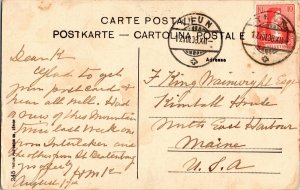 CARTE POSTALE
POSTKARTE - CARTOLINA POSTALE
10
Adresse
Dear K
Glad to get
your postcard &
hear all well. Had
a view of this Mountain
last week
from Interlaken and
another from St. Beatenberg
H.M.K.
August 17th
F. King Wainwright Esqre
Kimball House
North East Harbour
Maine
U.S.A